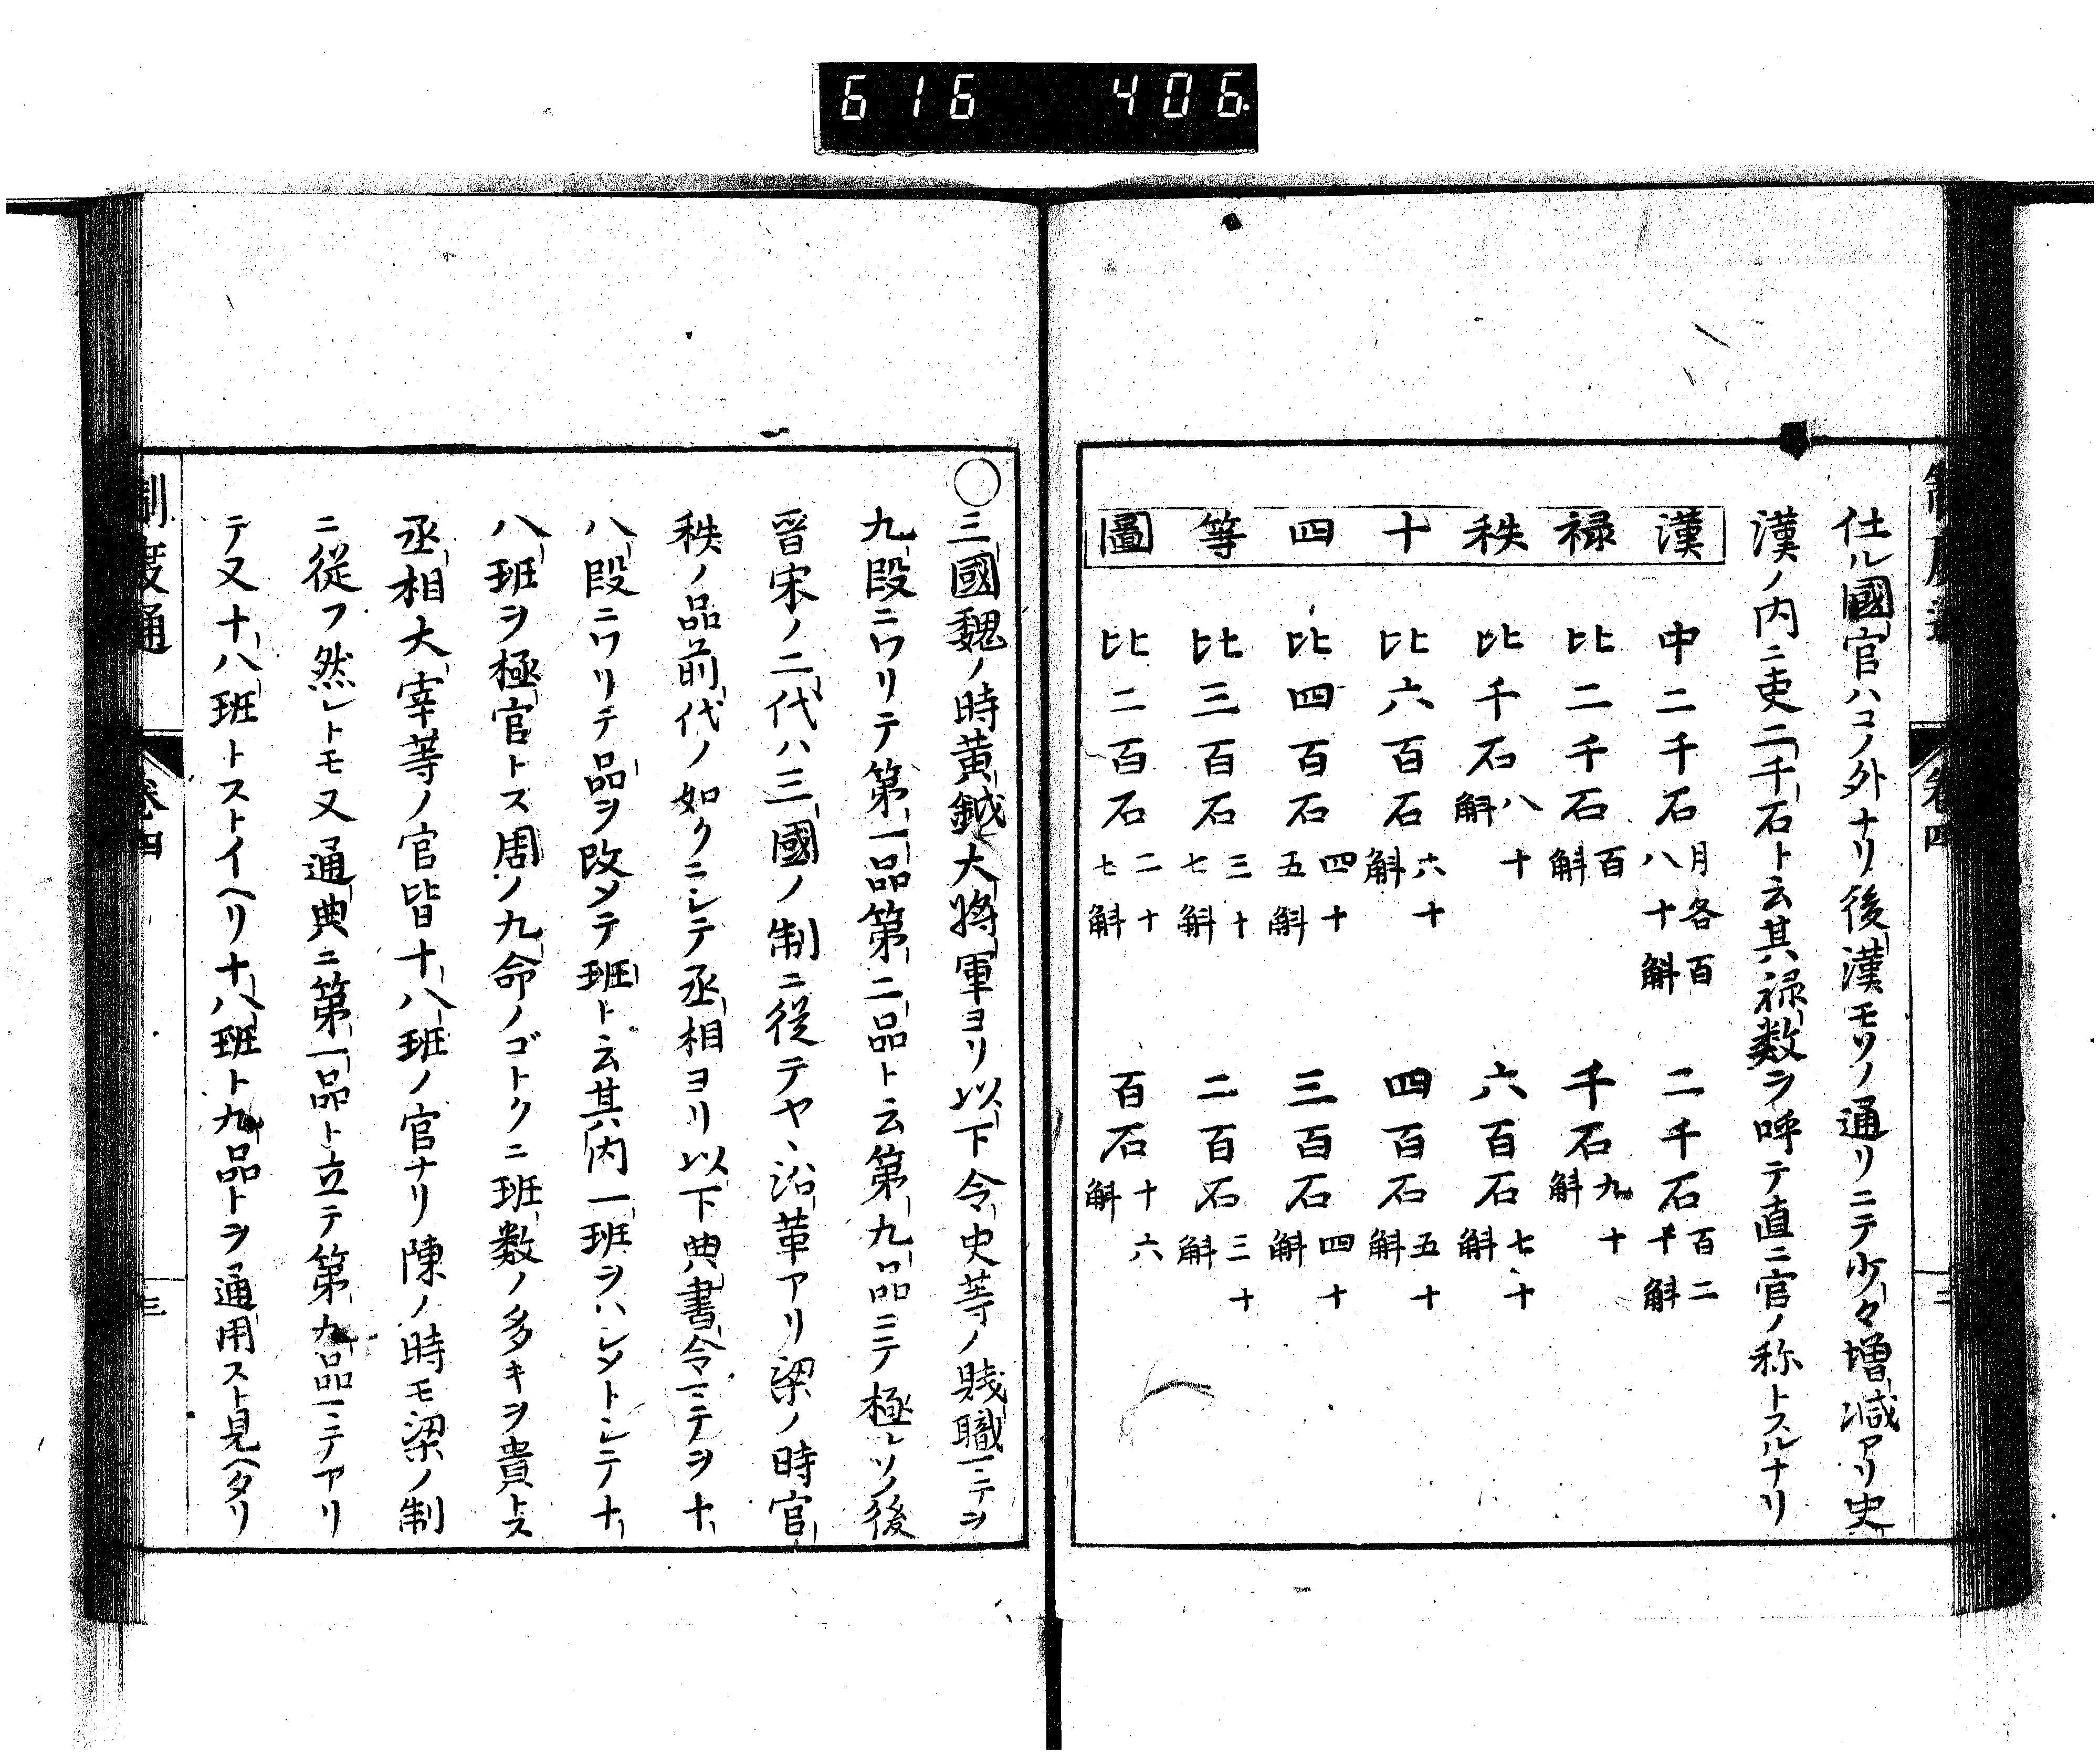 616 406
制度通
卷四
仕ル國官ハコノ外ナリ後漢モソノ通リニテ少々増減アリ史
漢ノ内ニ吏二千石ト云其禄数ヲ呼テ直ニ官ノ称トスルナリ
漢禄秩十四等圖
中二千石 月各百八十斛 二千石 百二十斛
比二千石 百斛 千石 九十斛
比千石 八十斛 六百石 七十斛
比六百石 六十斛 四百石 五十斛
比四百石 四十五斛 三百石 四十斛
比三百石 三十七斛 二百石 三十斛
比二百石 二十七斛 百石 十六斛
〇三國魏ノ時黄鉞大将軍ヨリ以下令史等ノ賤職ニテヲ
九段ニワリテ第一品第二品ト云第九品ニテ極レソノ後
晋宋ノ二代ハ三國ノ制ニ從テヤヽ沿革アリ梁ノ時官
秩ノ品前代ノ如クニシテ丞相ヨリ以下典書令ニテヲ十
八段ニワリテ品ヲ改メテ班ト云其内一班ヲハシメトシテ十
八班ヲ極官トス周ノ九命ノゴトクニ班数ノ多キヲ貴トス
丞相大宰等ノ官皆十八班ノ官ナリ陳ノ時モ梁ノ制
ニ從フ然レトモ又通典ニ第一品ト立テ第九品ニテアリ
テ又十八班トストイヘリ十八班ト九品トヲ通用スト見ヘタリ
制度通
卷四
三